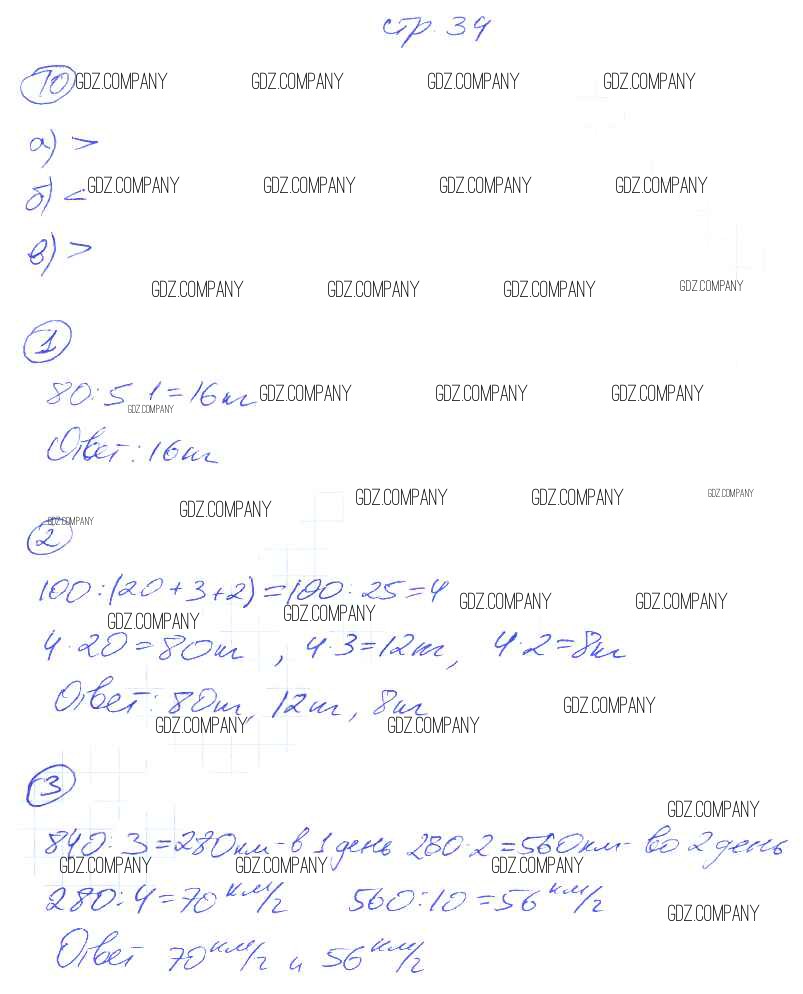 стр. 34
10 GDZ.COMPANY GDZ.COMPANY GDZ.COMPANY GDZ.COMPANY
а) >
б) < GDZ.COMPANY GDZ.COMPANY GDZ.COMPANY GDZ.COMPANY
в) >
GDZ.COMPANY GDZ.COMPANY GDZ.COMPANY GDZ.COMPANY
1
80:5 1=16т GDZ.COMPANY GDZ.COMPANY GDZ.COMPANY
GDZ.COMPANY
Ответ: 16т
GDZ.COMPANY GDZ.COMPANY GDZ.COMPANY GDZ.COMPANY
GDZ.COMPANY
2
100:(20+3+2)=100:25=4 GDZ.COMPANY GDZ.COMPANY
GDZ.COMPANY GDZ.COMPANY
4·20=80т, 4·3=12т, 4·2=8т
Ответ: 80т, 12т, 8т GDZ.COMPANY
GDZ.COMPANY GDZ.COMPANY
3
GDZ.COMPANY
840:3=280км-в 1 день 280·2=560км-во 2 день
GDZ.COMPANY GDZ.COMPANY GDZ.COMPANY
280:4=70км/г 560:10=56км/г
GDZ.COMPANY
Ответ 70км/г и 56км/г